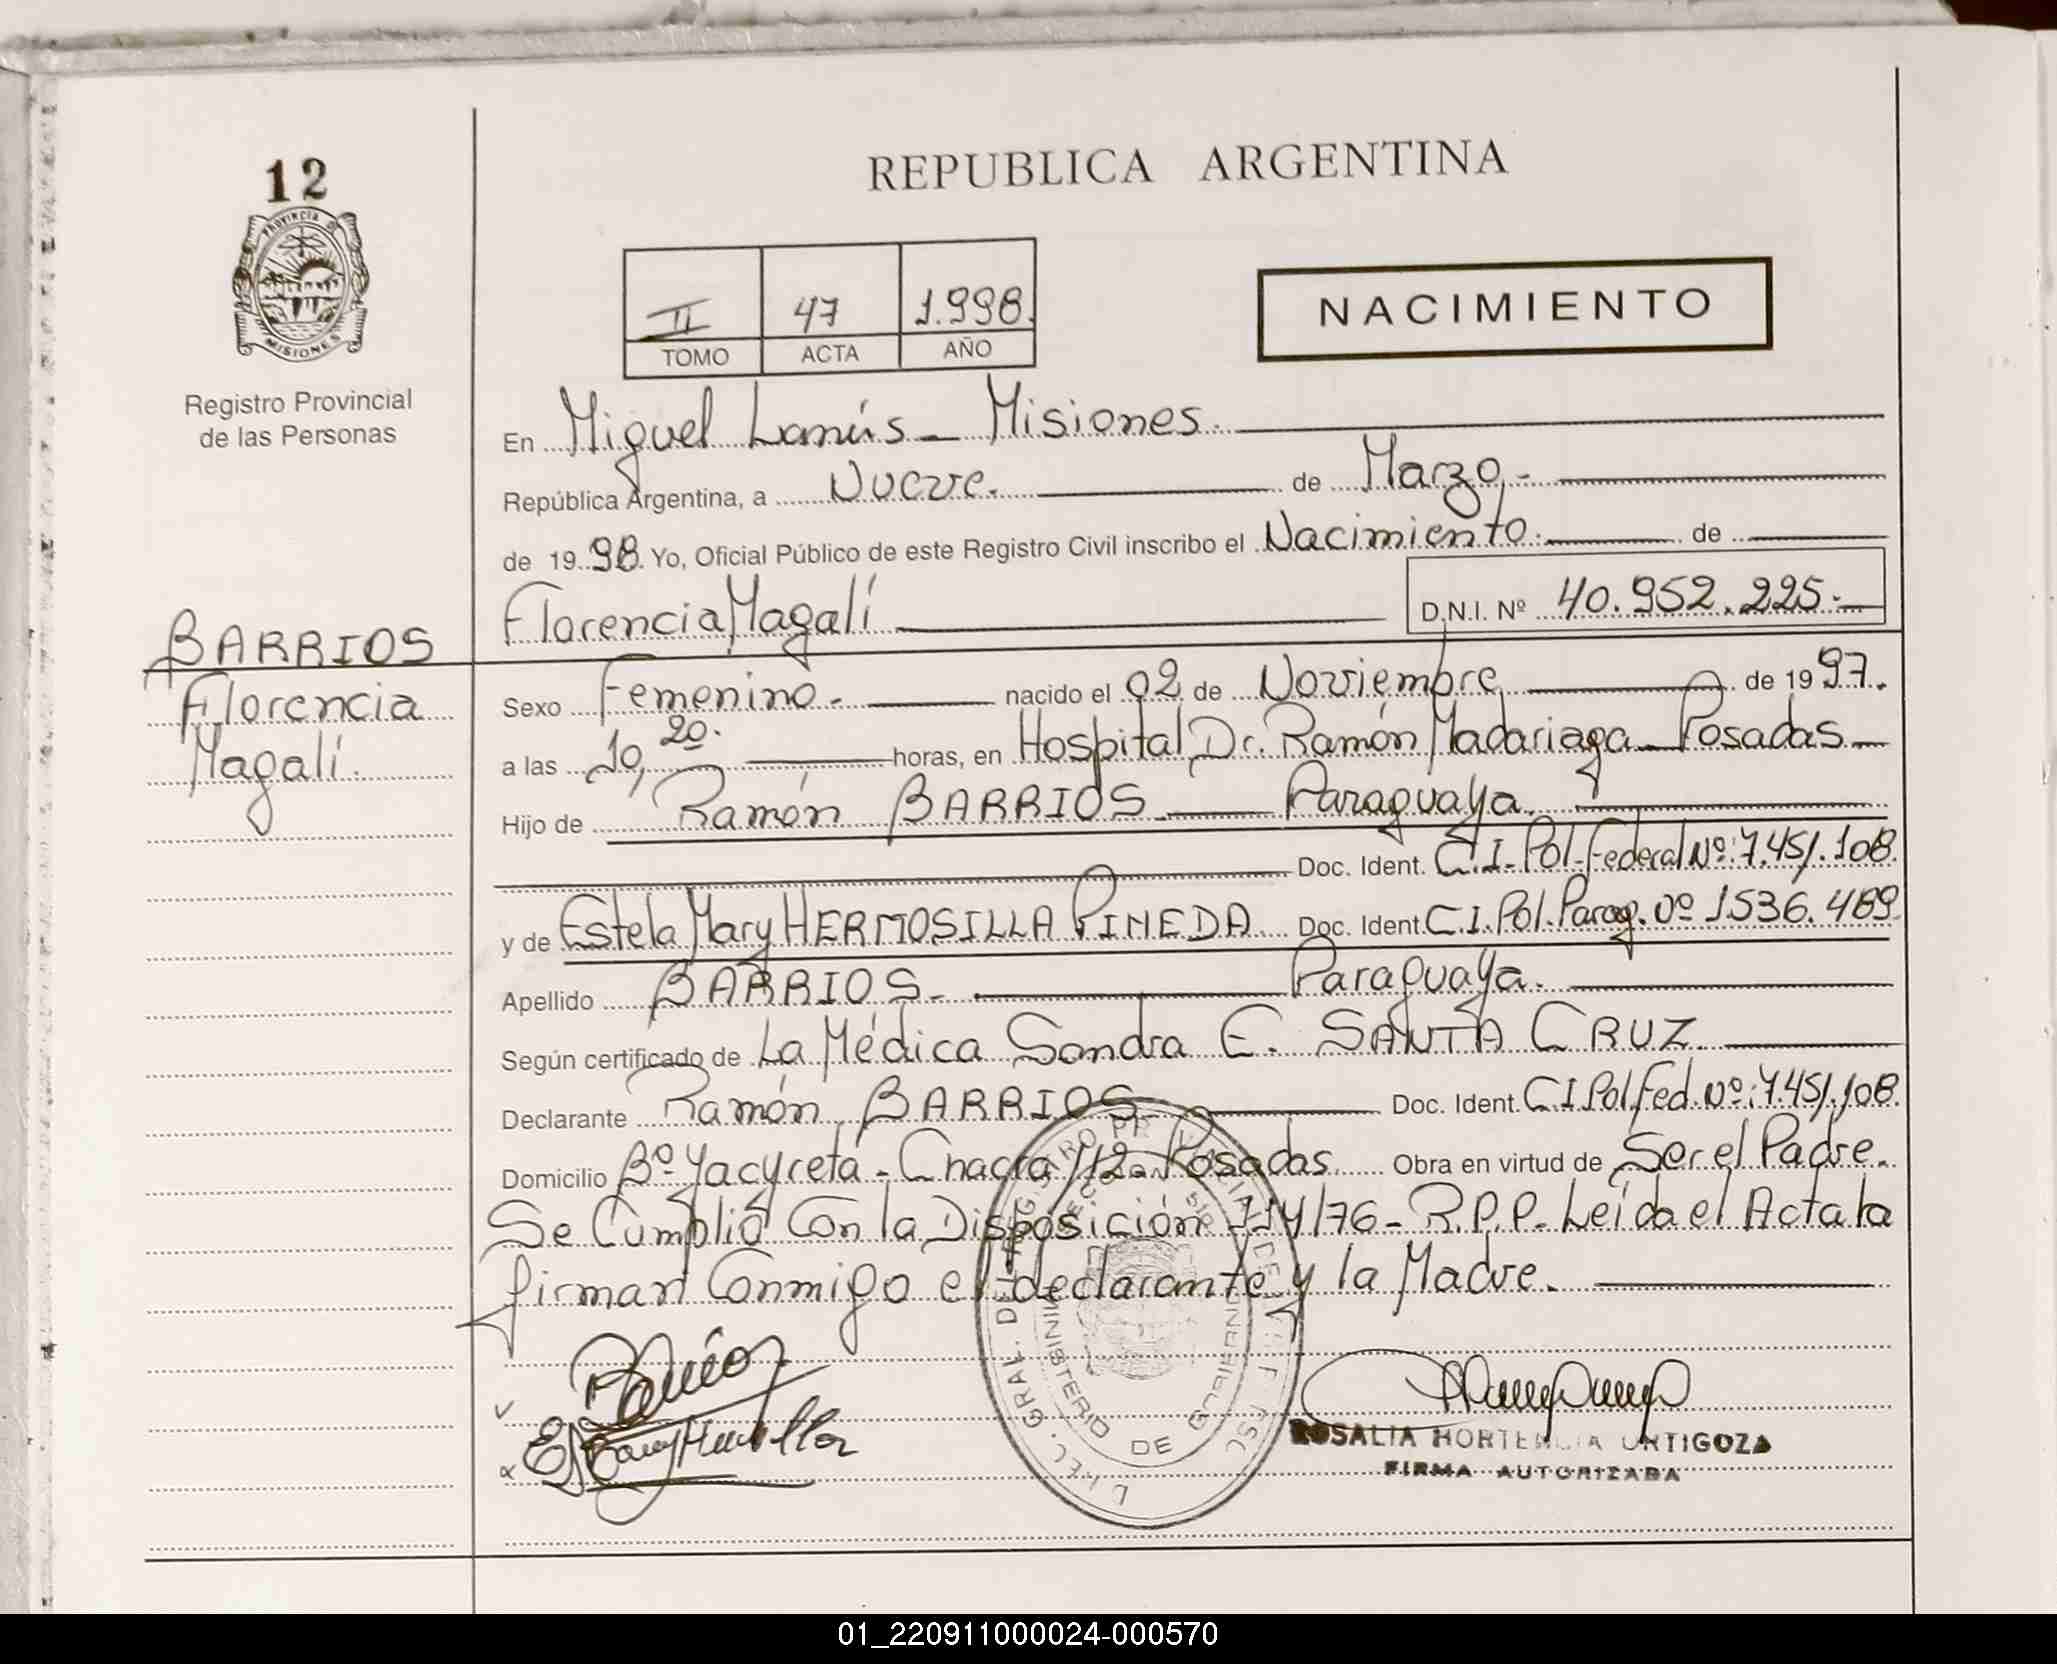 12
PROVINCIA DE
MISIONES
Registro Provincial
de las Personas
BARRIOS
Florencia
Magalí.
REPUBLICA ARGENTINA
II 47 1.998.
TOMO ACTA AÑO
NACIMIENTO
En Miguel Lanús - Misiones.
República Argentina, a Nueve. de Marzo.-
de 1998. Yo, Oficial Público de este Registro Civil inscribo el Nacimiento. de
Florencia Magalí D.N.I. Nº 40.952.225.-
Sexo Femenino.- nacido el 02 de Noviembre de 1997.
a las 10,20. horas, en Hospital Dr. Ramón Madariaga - Posadas -
Hijo de Ramón BARRIOS - Paraguaya.
Doc. Ident. C.I. Pol. Federal Nº: 7.451.108.
y de Estela Mary HERMOSILLA PINEDA Doc. Ident. C.I. Pol. Parag. Nº 1536.489.
Apellido BARRIOS. Paraguaya.
Según certificado de La Médica Sandra E. SANTA CRUZ
Declarante Ramón BARRIOS Doc. Ident. C I Pol Fed. Nº: 7.451.108.
Domicilio Bº Yacyretá - Chacra 112 - Posadas Obra en virtud de Ser el Padre.
Se Cumplió Con la Disposición 114/76 - R.P.P. Leída el Acta la
firman Conmigo el declarante y la Madre.
MINISTERIO DE GOBIERNO
ROSALIA HORTENCIA ORTIGOZA
FIRMA AUTORIZADA
01_220911000024-000570